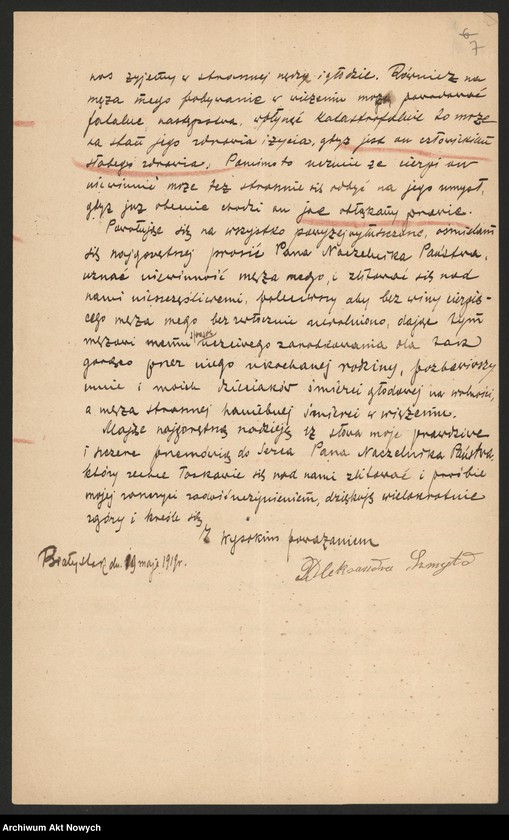 6
7
nas żyjemy w strasznej nędzy i głodzie. Również na
męża mego pobywanie w więzieniu może powodować
fatalne następstwa, wpłynąć katastrofalnie to może
na stan jego zdrowia i życia, gdyż jest on człowiekiem
słabego zdrowia. Pomimo to że cierpi on
niewinnie może też strasznie się odbyć na jego umysł,
gdyż już obecnie chodzi on jak obłąkany prawie.
Powołując się na wszystko powyżej wyłuszczone, ośmielam
się najgoręcej prosić Pana Naczelnika Państwa,
uznać niewinność męża mego, i zlitować się nad
nami nieszczęśliwemi, poleciwszy aby bez winy cierpią-
cego męża mego bezzwłocznie uwolniono, dając tym
mężowi memu uczciwego zarobkowania dla tak
gorąco przez niego ukochanej rodziny, pozbawiwszy
mnie i moich dzieciaków śmierci głodowej na wolności,
a męża strasznej haniebnej śmierci w więzieniu.
Mając najgorętszą nadzieję iż słowa moje prawdziwe
i szczere przemówią do Serca Pana Naczelnika Państwa,
który zechce łaskawie się nad nami zlitować i prośbie
mojej zadość uczynieniem, dziękuję wielokrotnie
zgóry i kreślę się
Z wysokim poważaniem
Białystok dn. 19 maja 1919r.
Aleksandra Szmydt
Archiwum Akt Nowych